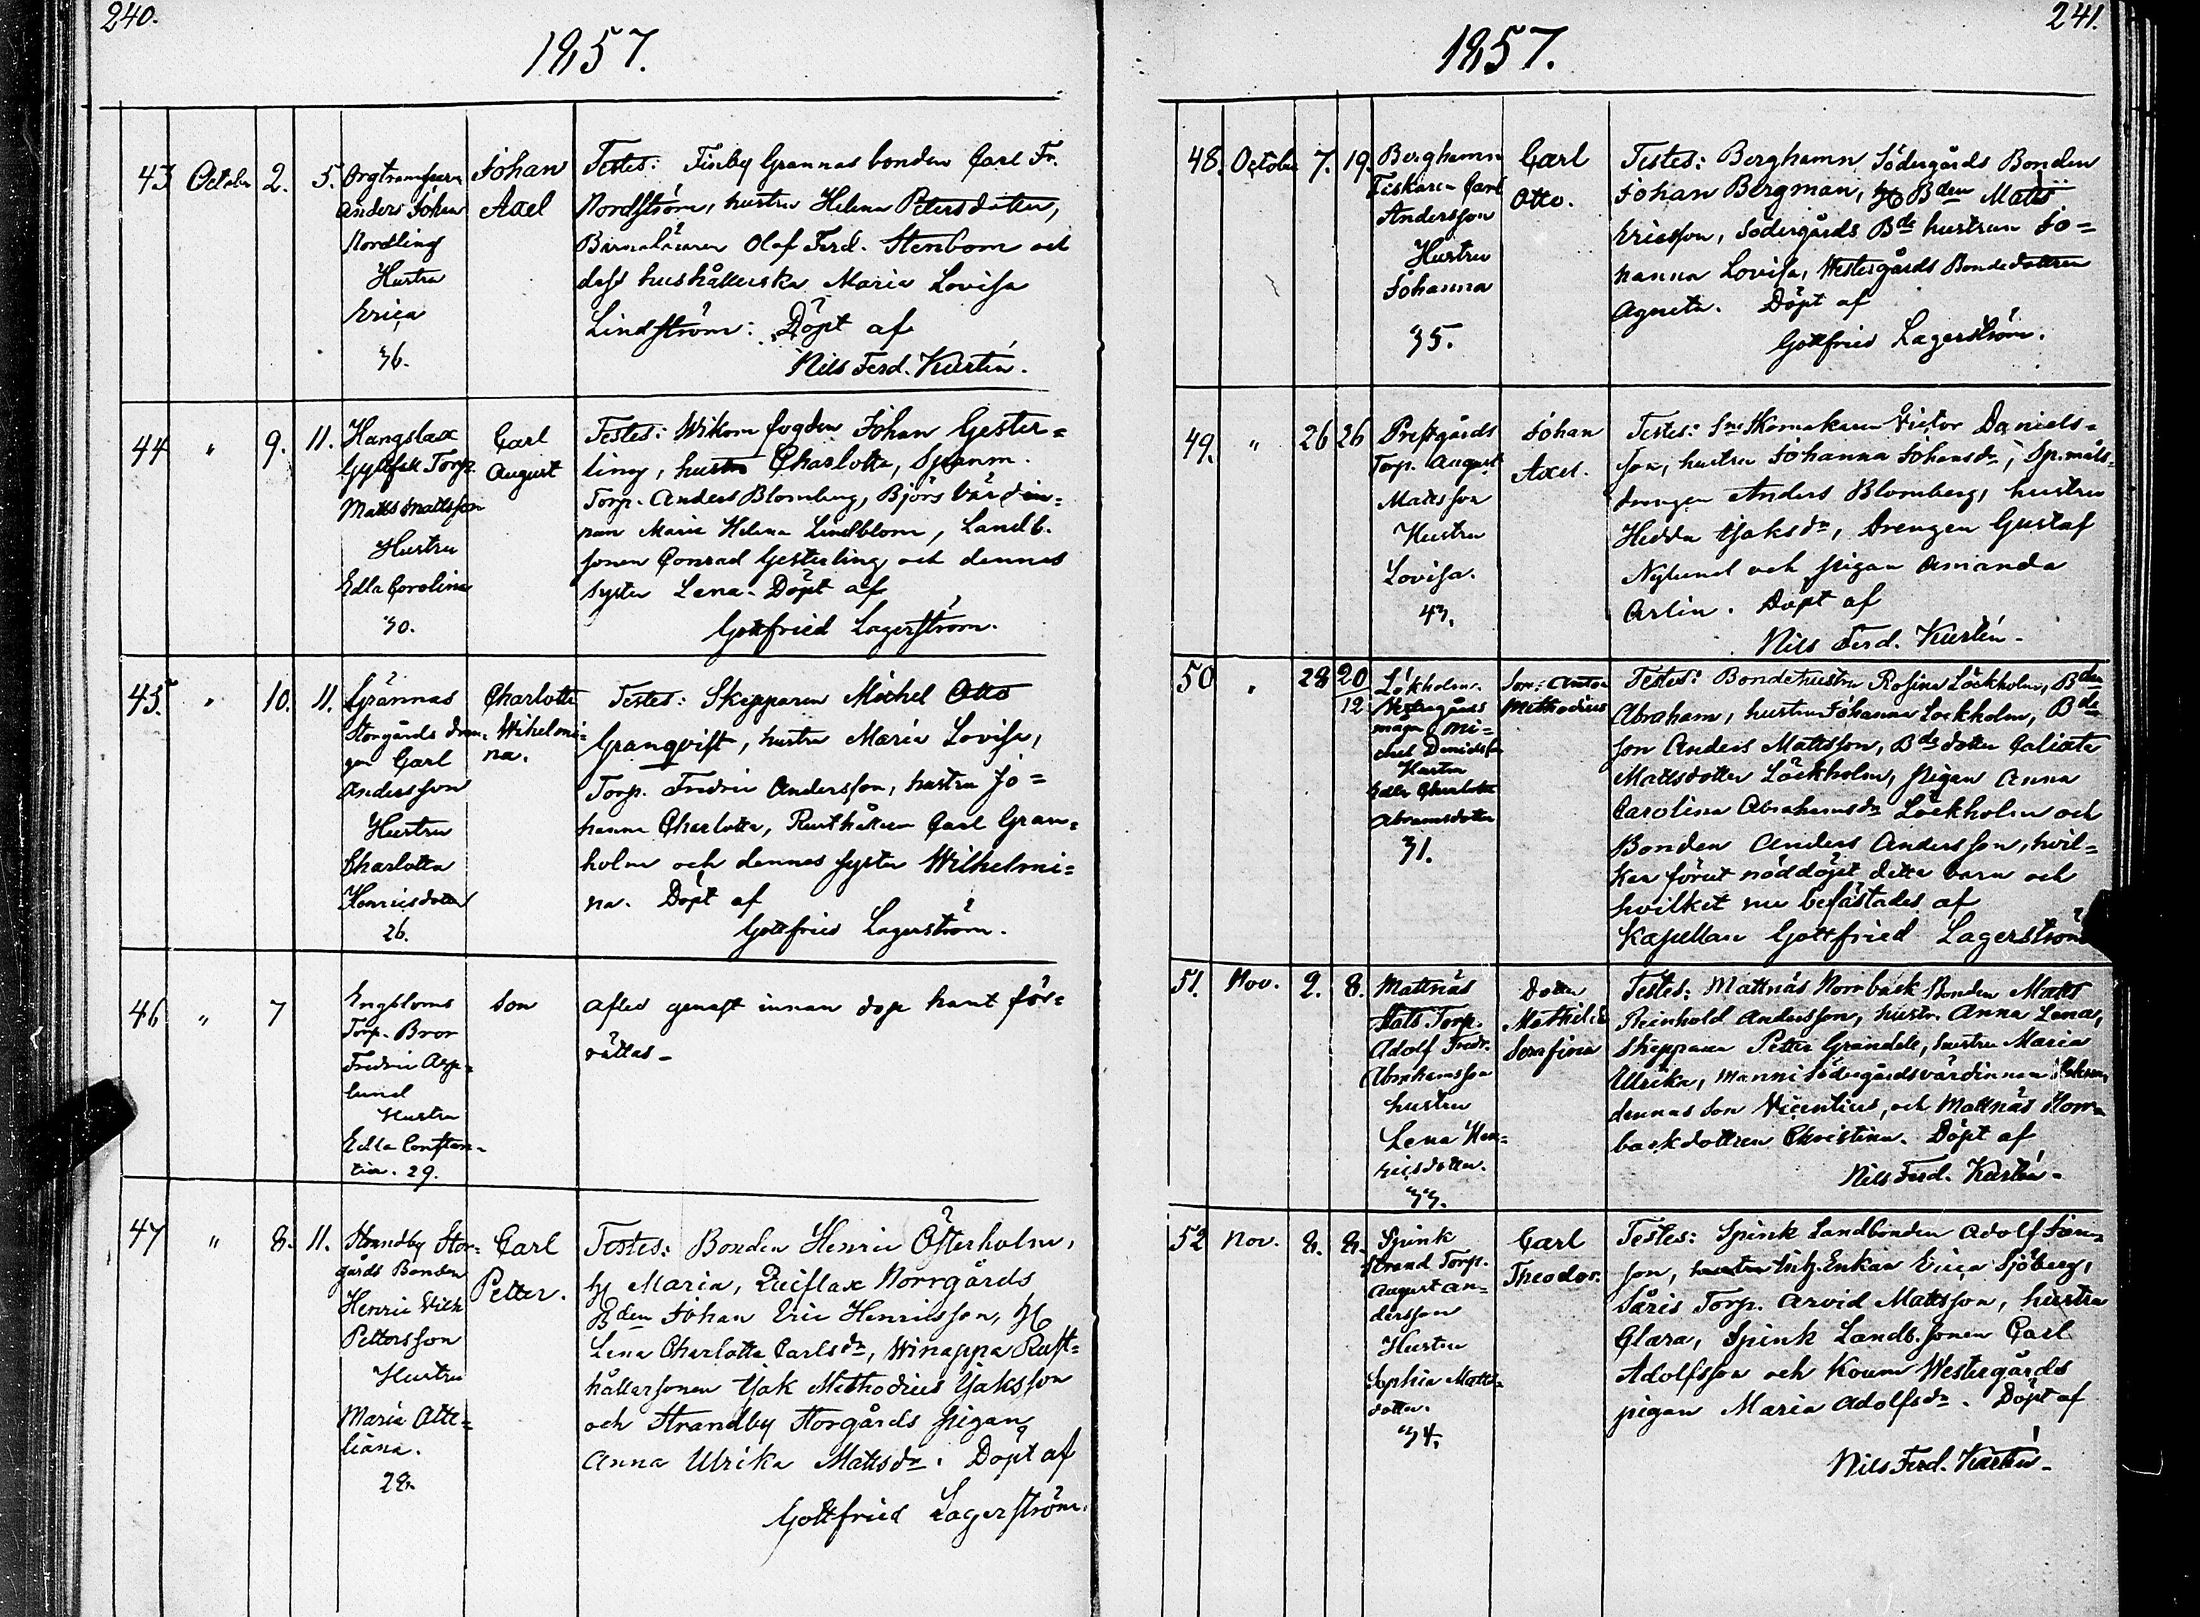 240.
1857.
43 October 2. 5.
Anders Johan
Nordling
Hustru
Erica
36.
Johan
Axel
Testes: Finby Grannas bonden Carl Fr.
Nordström, hustru Helena Petersdotter,
Olof Ferd. Stenbom och
dess hushållerska Maria Lovisa
Lindström. Döpt af
Nils Ferd. Kurtén.
44 " 9. 11.
Hangslax
Torp.
Matts Mattsson
Hustru
Edla Carolina
30.
Carl
August
Testes: Wikom fogden Johan Gester=
ling, hustru Charlotta, Spanm.
Torp. Anders Blomberg, Björs värdin=
nan Maria Helena Lindblom, Landb.
sonen Conrad Gesterling och dennes
syster Lena. Döpt af
Gottfried Lagerström.
45. " 10. 11.
Grännas
Storgårds dren=
gen Carl
Andersson
Hustru
Charlotta
Henricsdotter
26.
Charlotta
Wilhelmi=
na.
Testes: Skepparen Michel Otto
Granqvist, hustru Maria Lovisa,
Torp. Fredric Andersson, hustru Jo=
hanna Charlotta, Rusthållaren Carl Gran=
holm och dennes syster Wilhelmi=
na. Döpt af
Gottfried Lagerström.
46 " 7
Engbloms
Torp. Bror
Fredric Asp=
lund
Hustru
Edla Constan=
tia. 29.
Son
Afled genast innan dop hant för=
rättas.
47 " 8. 11.
Strandby Stor=
gårds Bonden
Henric Wilh.
Pettersson
Hustru
Maria Otte=
liana.
28.
Carl
Petter.
Testes: Bonden Henric Österholm,
H. Maria, Norrgårds
Bden Johan Eric Henricsson, H.
Lena Charlotta Carlsdr, Winappa Rust=
hållarsonen Isak Methodius Isaksson
och Strandby Storgårds pigan
Anna Ulrika Mattsdr. Döpt af
Gottfried Lagerström.
241.
1857.
48. October 7. 19.
Berghamn
Fiskaren Carl
Andersson
Hustru
Johanna
35.
Carl
Otto.
Testes: Berghamn Södergårds Bonden
Johan Bergman, Bden Matts
Ericsson, Södergårds Bde hustrun Jo=
hanna Lovisa, Westergårds Bondedottren
Agneta. Döpt af
Gottfried Lagerström.
49. " 26 26
Prestgårds
Torp. August
Mattsson
Hustru
Lovisa.
43.
Johan
Axel.
Testes: Skomakaren Victor Daniels=
son, hustru Johanna Johansdr, Sp.måls=
Anders Blomberg, hustru
Hedda Isaksdr, Drengen Gustaf
Nylund och pigan Amanda
Arlin. Döpt af
Nils Ferd. Kurtén.
50 " 28 20/12
Löckholm
Westergårds
mågen Mi=
chel Danielss.
Hustru
Edla Charlotta
Abramsdotter
31.
Son: Anton
Methodius
Testes: Bondehustru Rosina Löckholm, Bden
Abraham, hustrun Johanna Lockholm, Bde
son Anders Mattsson, Bdedotter Calixta
Mattsdotter Löckholm, pigan Anna
Carolina Abrahamsdr Löckholm och
Bonden Anders Andersson, hvil=
ken förut nöddöpt detta barn och
hvilket nu befästades af
Kapellan Gottfried Lagerström
51. Nov. 2. 8.
Mattnäs
Torp.
Adolf Fredr.
Abrahamsson
hustru
Lena Hen=
ricsdotter.
33.
Dotter
Mathilda
Serafina
Testes: Mattnäs Norrback Bonden Matts
Reinhold Andersson, hustr. Anna Lena,
Skepparen Petter Grandell, hustru Maria
Ulrika, Manni Södergårdsvärdinnan
dennas son Vicentius, och Mattnäs Norr=
backdottren Christina. Döpt af
Nils Ferd. Kurtén.
52 Nov. 8. 8.
Spink
Strand Torp.
August An=
dersson
Hustru
Sophia Matts=
dotter.
34.
Carl
Theodor.
Testes: Spink Landbonden Adolf Sim=
son, Enkan Erica Sjöberg,
Såris Torp. Arvid Mattsson, hustru
Clara, Spink Landb.sonen Carl
Adolfsson och Koum Westergårds
pigan Maria Adolfsdr. Döpt af
Nils Ferd. Kurtén.